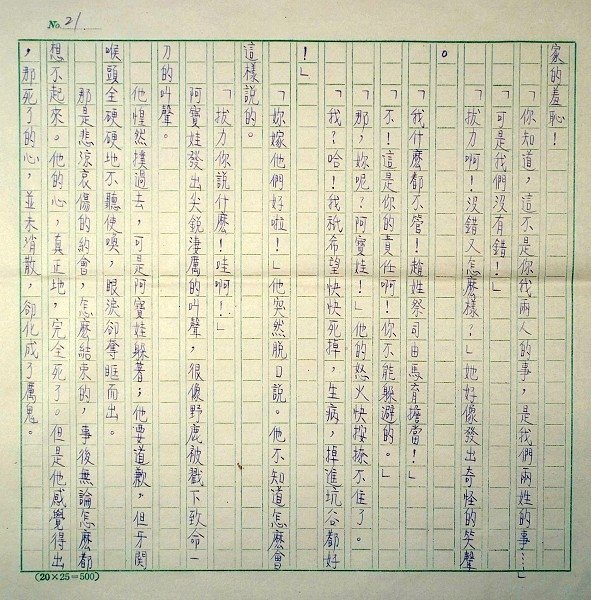 No. 21
家的羞恥！
「你知道，這不是你我兩人的事，是我們兩姓的事…」
「可是我們沒有錯！」
「拔力啊！沒錯又怎麼樣？」她好像發出奇怪的笑聲
。
「我什麼都不管！趙姓祭司由馬育擔當！」
「不！這是你的責任啊！你不能躲避的。」
「那，妳呢？阿寶娃！」他的怒火快按捺不住了。
「我？哈！我祇希望快快死掉，生病，掉進坑谷都好
！」
「妳嫁他們好啦！」他突然脫口說。他不知道怎麼會
這樣說的。
「拔力你說什麼！哇啊！」
阿寶娃發出尖銳淒厲的叫聲，很像野鹿被戳下致命一
刀的叫聲。
他惶然撲過去，可是阿寶娃躲著；他要道歉，但牙關
喉頭全硬硬地不聽使喚，眼淚卻奪眶而出。
那是悲涼哀傷的約會，怎麼結束的，事後無論怎麼都
想不起來。他的心，真正地，完全死了。但是他感覺得出
，那死了的心，並未消散，卻化成了厲鬼。
(20×25=500)